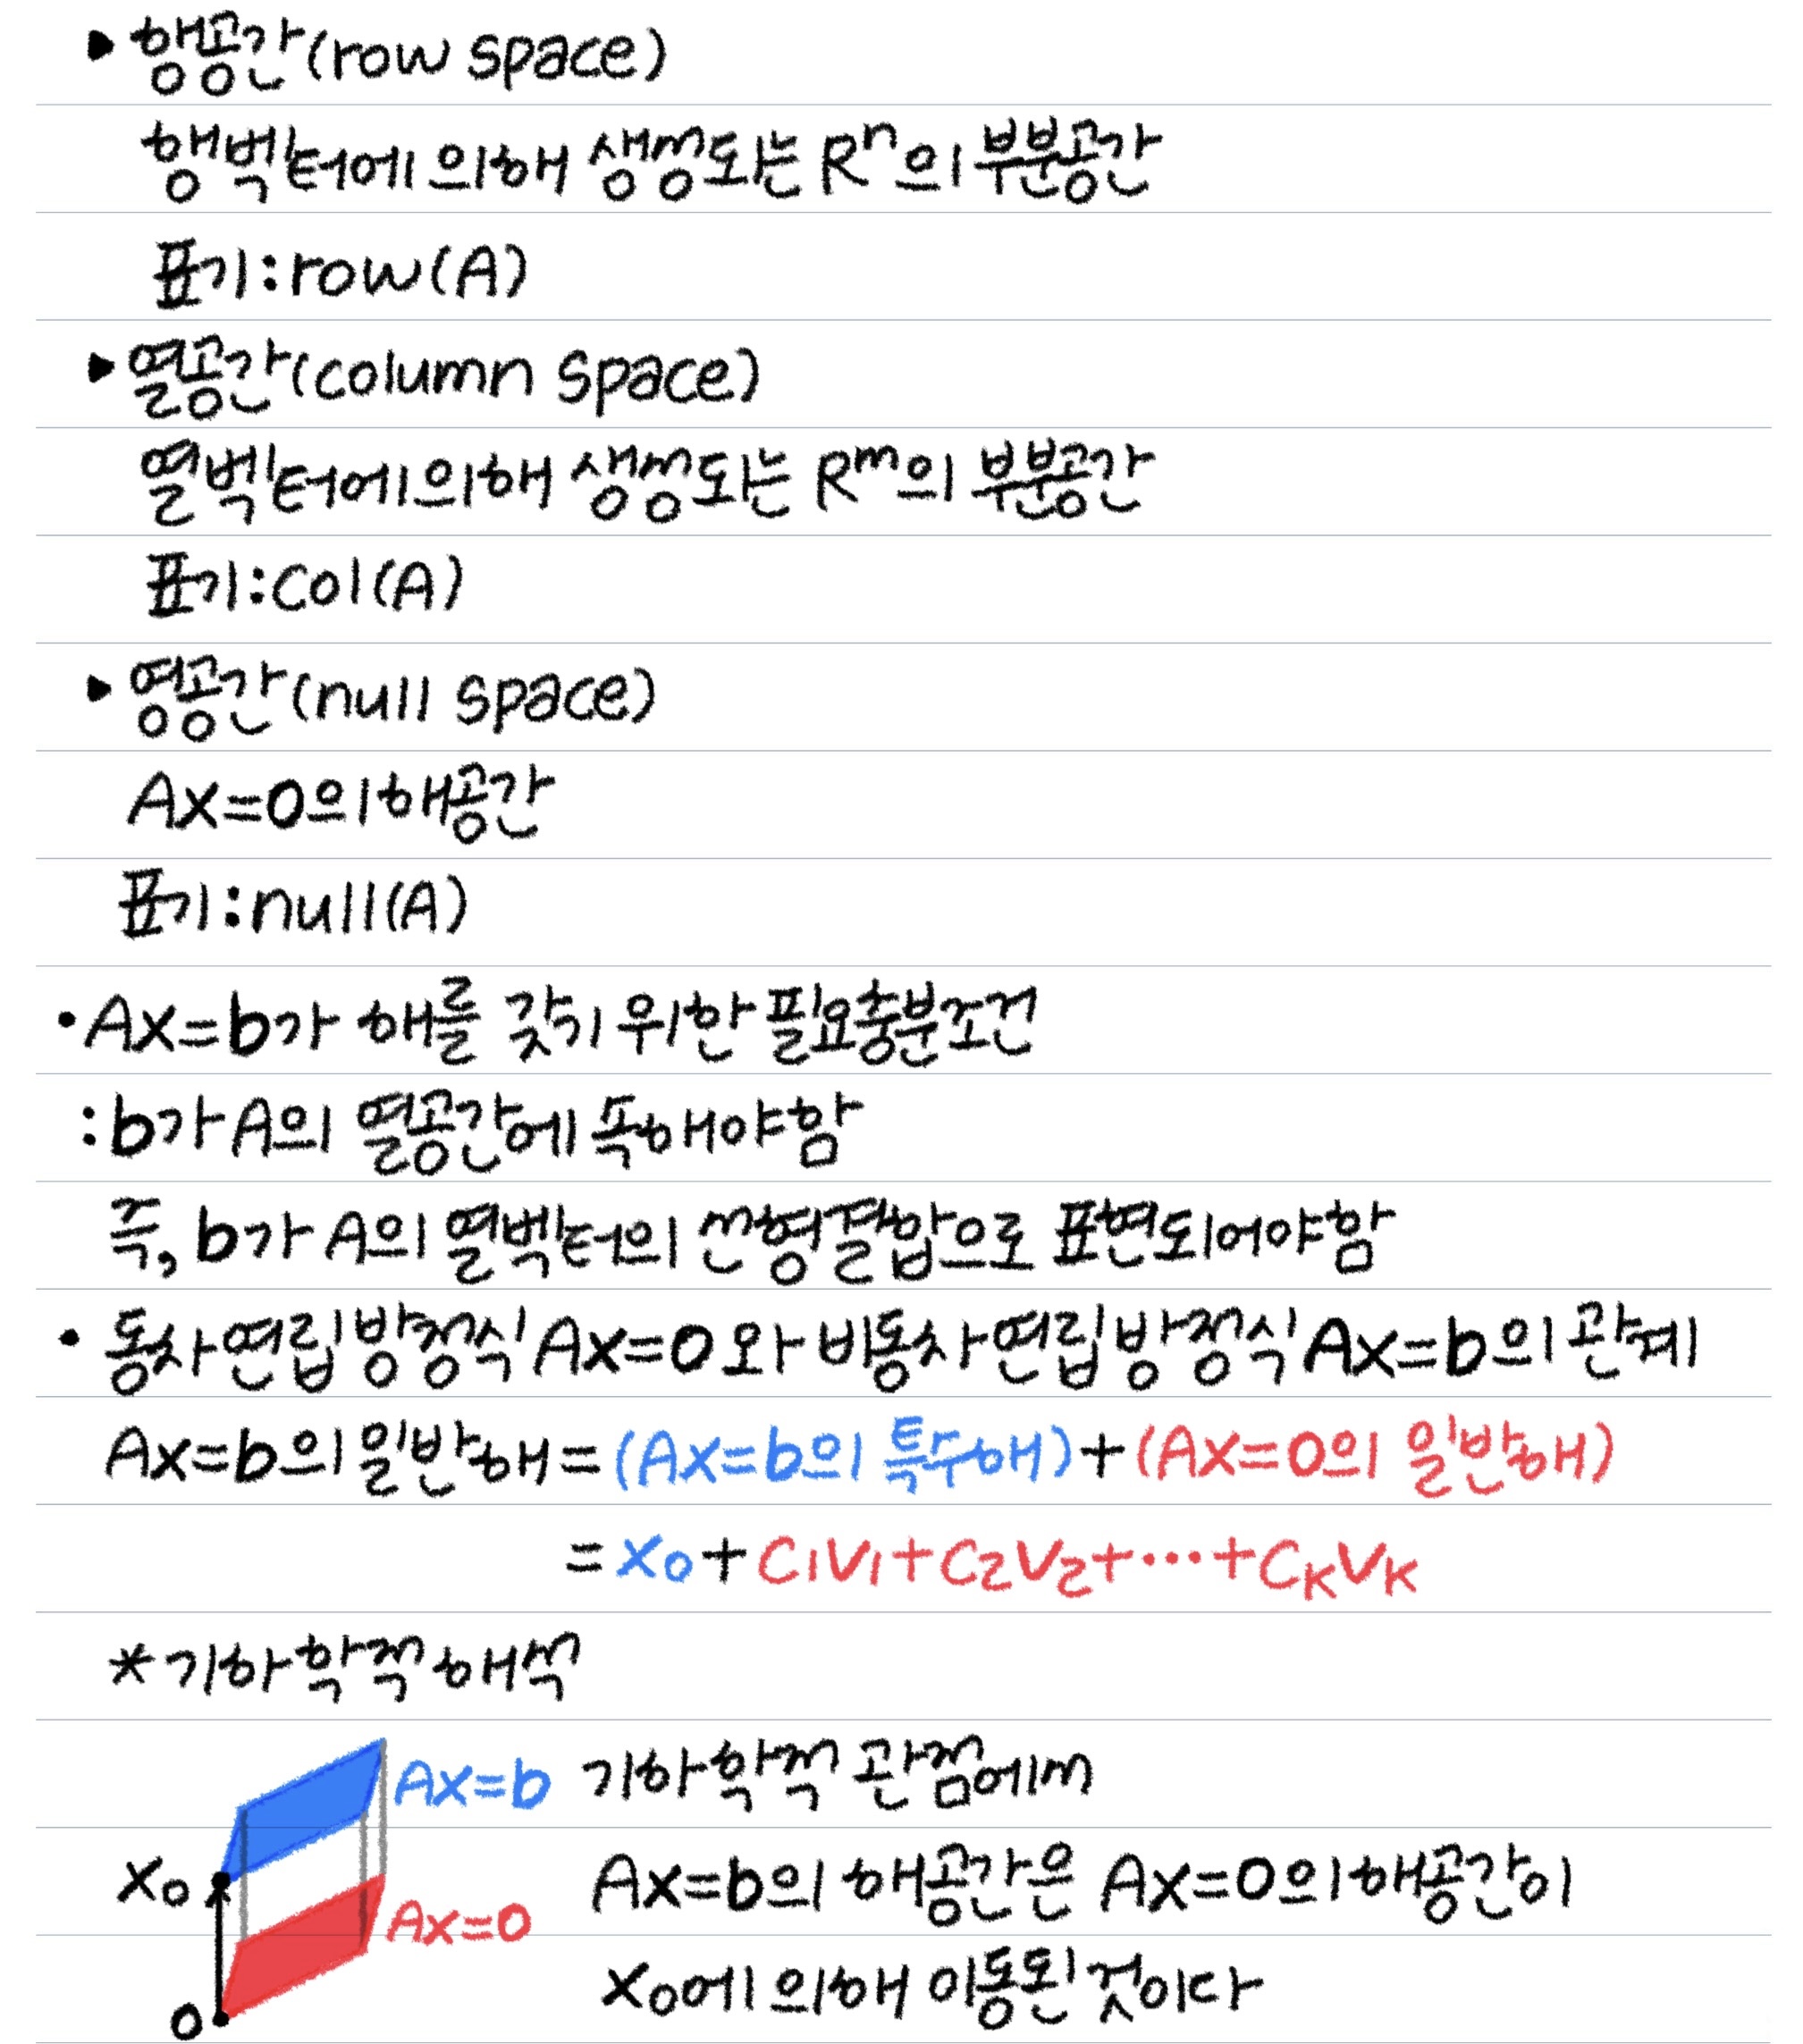 ▶ 행공간(row space)
행벡터에 의해 생성되는 Rⁿ의 부분공간
표기:row(A)
▶ 열공간(column space)
열벡터에 의해 생성되는 Rᵐ의 부분공간
표기:Col(A)
▶ 영공간(null space)
Ax=0의 해공간
표기:null(A)
• Ax=b가 해를 갖기 위한 필요충분조건
:b가 A의 열공간에 속해야함
즉, b가 A의 열벡터의 선형결합으로 표현되어야함
• 동차연립방정식 Ax=0와 비동차연립방정식 Ax=b의 관계
Ax=b의 일반해=(Ax=b의 특수해)+(Ax=0의 일반해)
=x₀+C₁V₁+C₂V₂+⋯+CₖVₖ
*기하학적 해석
Ax=b 기하학적 관점에서
x₀ Ax=b의 해공간은 Ax=0의 해공간이
Ax=0
x₀에 의해 이동된 것이다
0